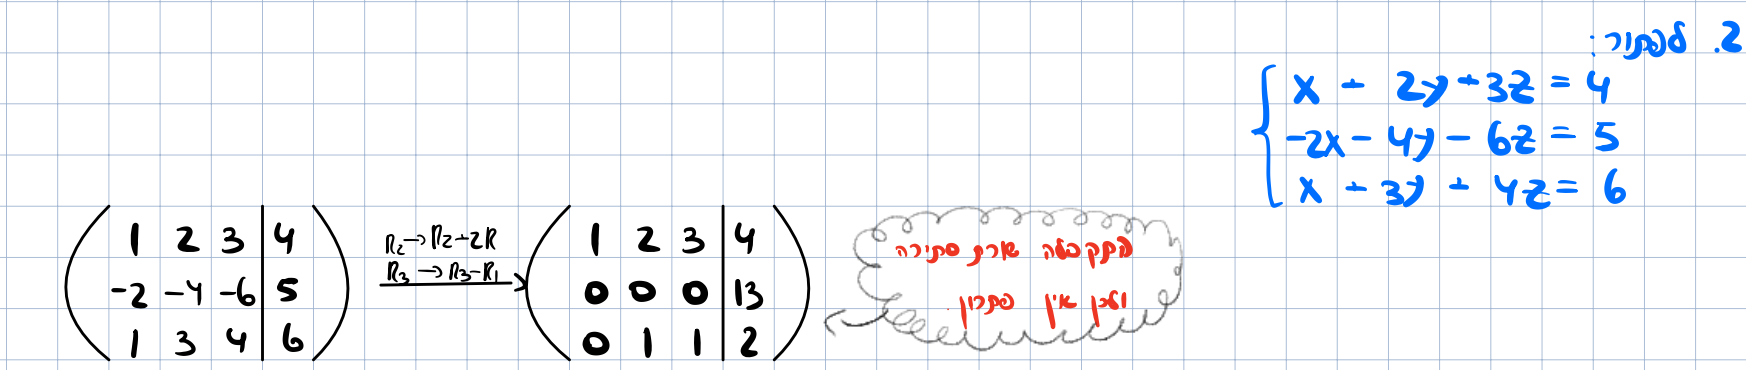 2. לפתור:
x + 2y + 3z = 4
-2x - 4y - 6z = 5
x + 3y + 4z = 6
1 2 3 | 4
-2 -4 -6 | 5
1 3 4 | 6
R₂→R₂+2R
R₃→R₃-R₁
1 2 3 | 4
0 0 0 | 13
0 1 1 | 2
התקבלה שורת סתירה
ולכן אין פתרון